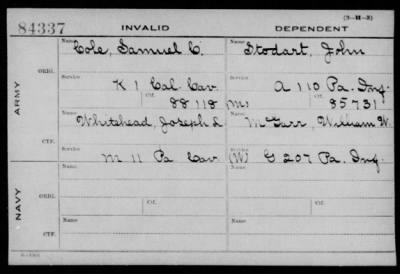 (3—H—3)
84337 INVALID DEPENDENT
Name Name
Cole, Samuel C. Stodart, John
ORIG.
Service Service
K 1 Cal Cav. A 110 Pa. Inf.
Ctf. Ctf.
88118 (M) 85731
ARMY
Name Name
Whitehead, Joseph L. McGarr, William W.
CTF.
Service Service
M 11 Pa Cav (W) G 207 Pa. Inf.
Name Name
ORIG.
Service Ctf. Service Ctf.
NAVY
Name Name
CTF.
Service Ctf. Service Ctf.